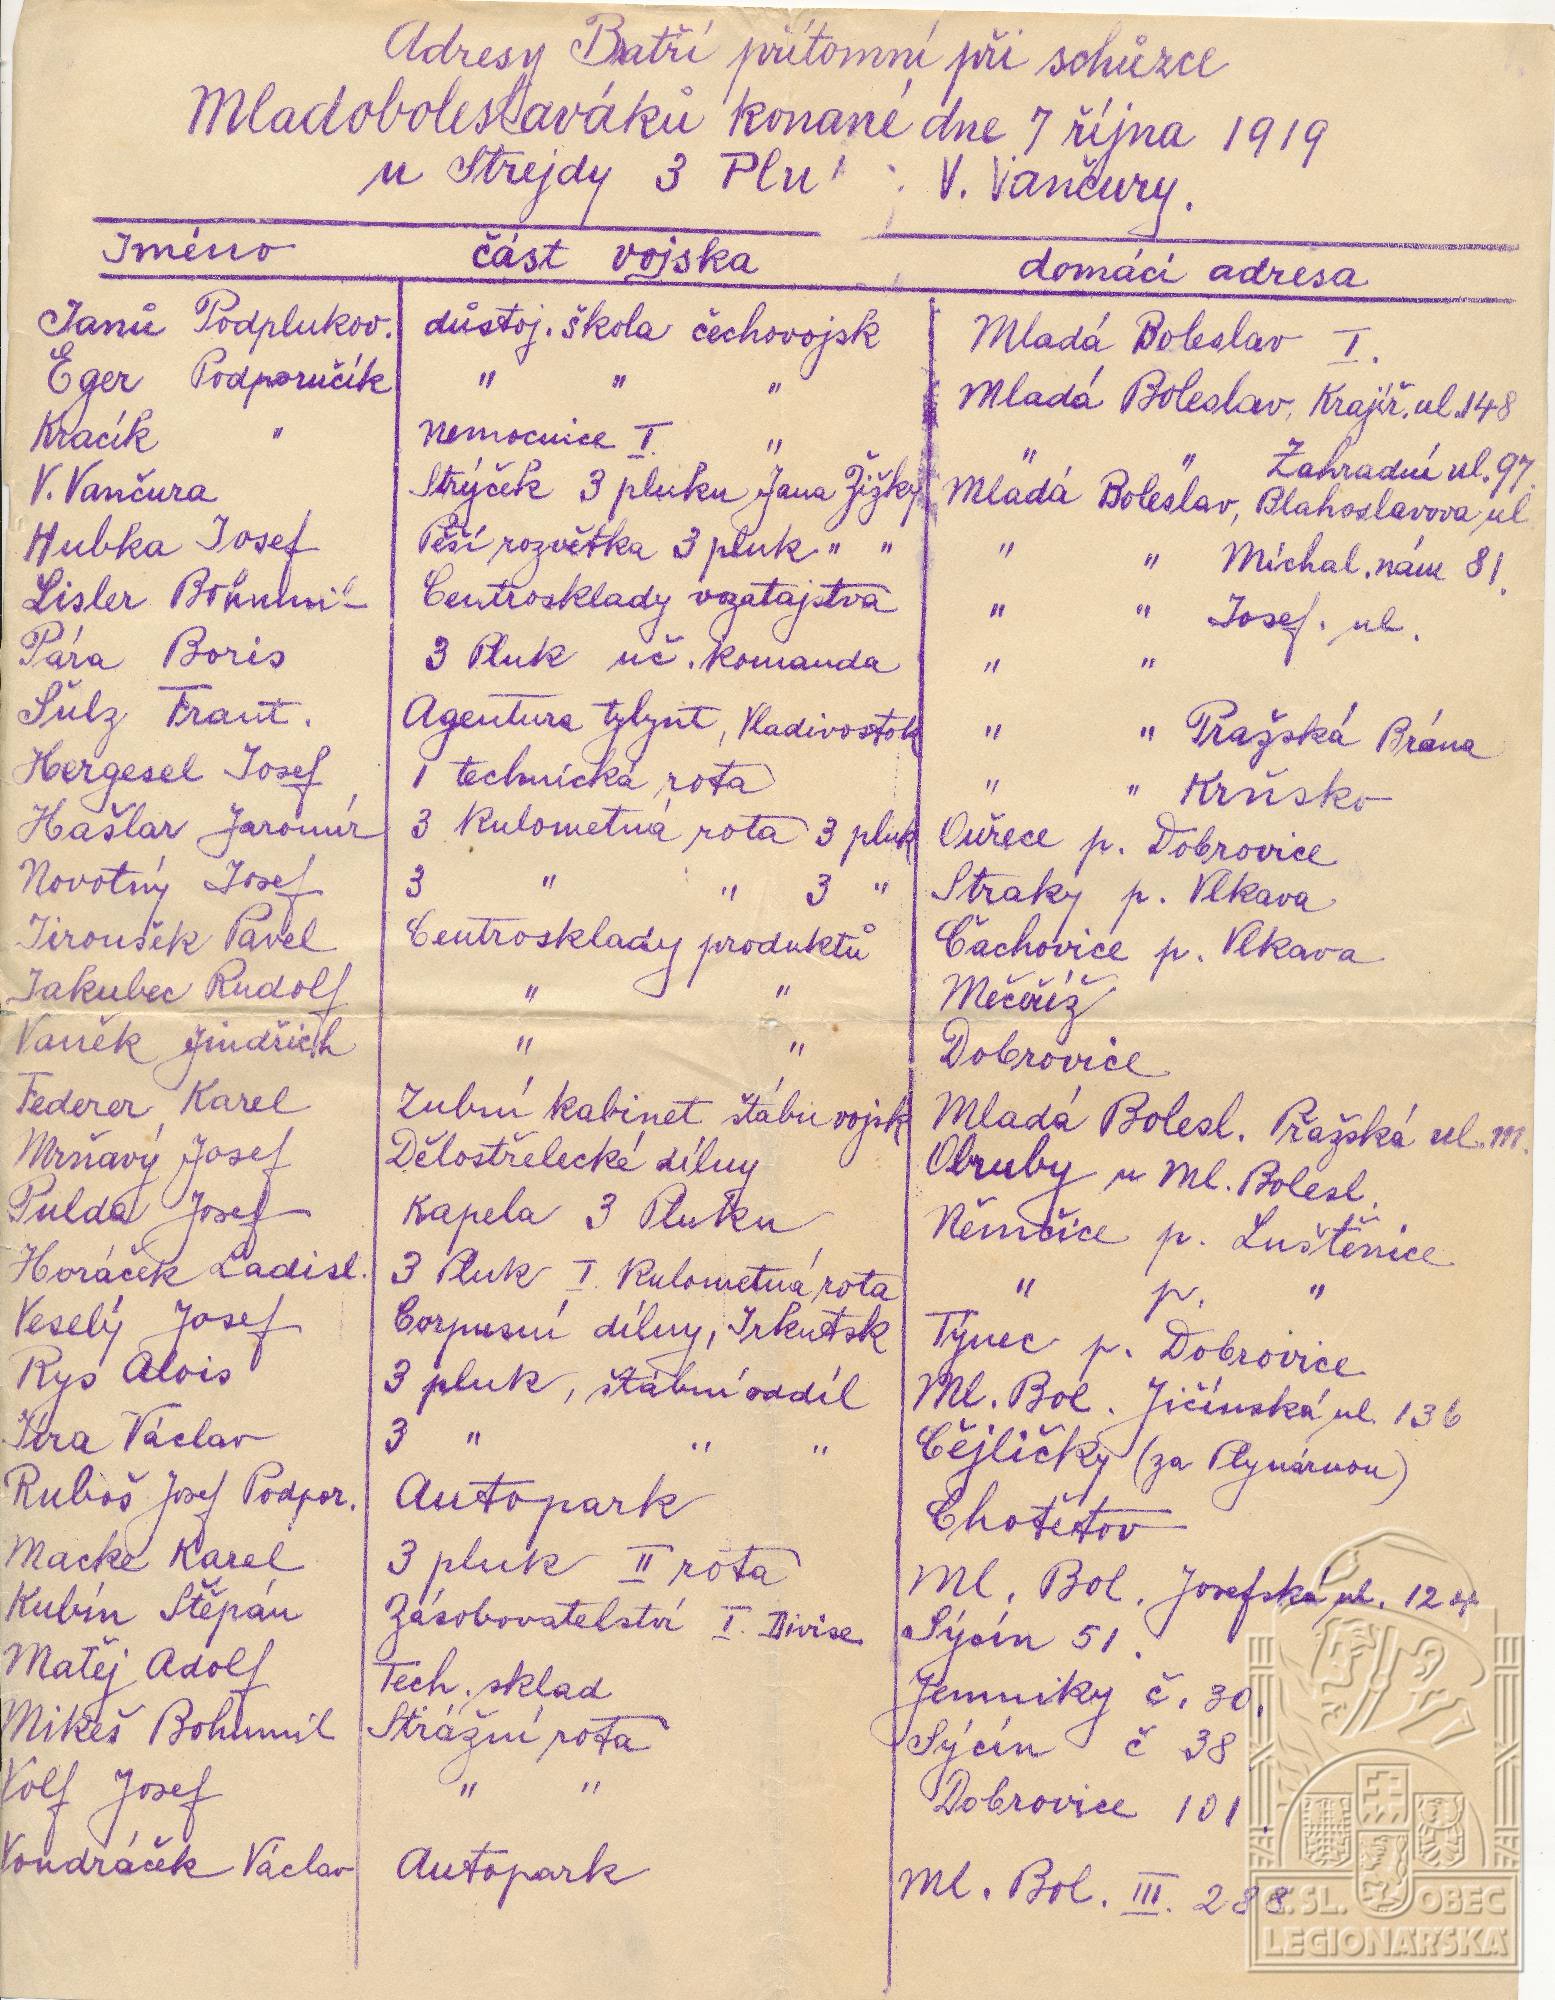 Adresy Bratří přítomní při schůzce
Mladoboleslaváků konané dne 7 října 1919
u Strejdy 3 Plu V. Vančury.
Jméno část vojska domácí adresa
Janů Podplukov. důstoj. škola čechovojsk Mladá Boleslav I.
Eger Podporučík " " " Mladá Boleslav, Krajíř. ul. 148
Kracík " Nemocnice I. " " " Zahradní ul. 97.
V. Vančura Strýček 3 pluku Jana Žižky Mladá Boleslav, Blahoslavova ul
Hubka Josef Pěší rozvětka 3 pluk " " " " Michal. nám 81.
Lisler Bohumil Centrosklady vozatajstva " " Josef. ul.
Pára Boris 3 Pluk uč. komanda " "
Šulz Frant. Agentura tylynt, Vladivostok " " Pražská Brána
Hergesel Josef 1 technická rota " " Krňsko
Hašlar Jaromír 3 Kulometná rota 3 pluk Ouřece p. Dobrovice
Novotný Josef 3 " " 3 " Straky p. Vlkava
Jiroušek Pavel Centrosklady produktů Čachovice p. Vlkava
Jakubec Rudolf " " Mečeříž
Vaněk Jindřich " " Dobrovice
Federer Karel Zubní kabinet štábu vojsk Mladá Bolesl. Pražská ul. 111.
Mrňavý Josef Dělostřelecké dílny Obruby u Ml. Bolesl.
Pulda Josef Kapela 3 Pluku Němčice p. Luštěnice
Horáček Ladisl. 3 Pluk I. Kulometná rota " p. "
Veselý Josef Corpusní dílny, Irkutsk Týnec p. Dobrovice
Rys Alois 3 pluk, štábní oddíl Ml. Bol. Jičínská ul. 136
Jíra Václav 3 " " " Čejličky (za Plynárnou)
Ruboš Josef Podpor. Autopark Chotětov
Macke Karel 3 pluk II rota Ml. Bol. Josefská ul. 124
Kubín Štěpán Zásobovatelství I. Divise Sýčín 51.
Matěj Adolf Tech. sklad Jemníky č. 30.
Mikeš Bohumil Strážní rota Sýčín č 38
Volf Josef " " Dobrovice 101.
Vondráček Václav Autopark Ml. Bol. III. 288
Č.SL. OBEC
LEGIONÁŘSKÁ